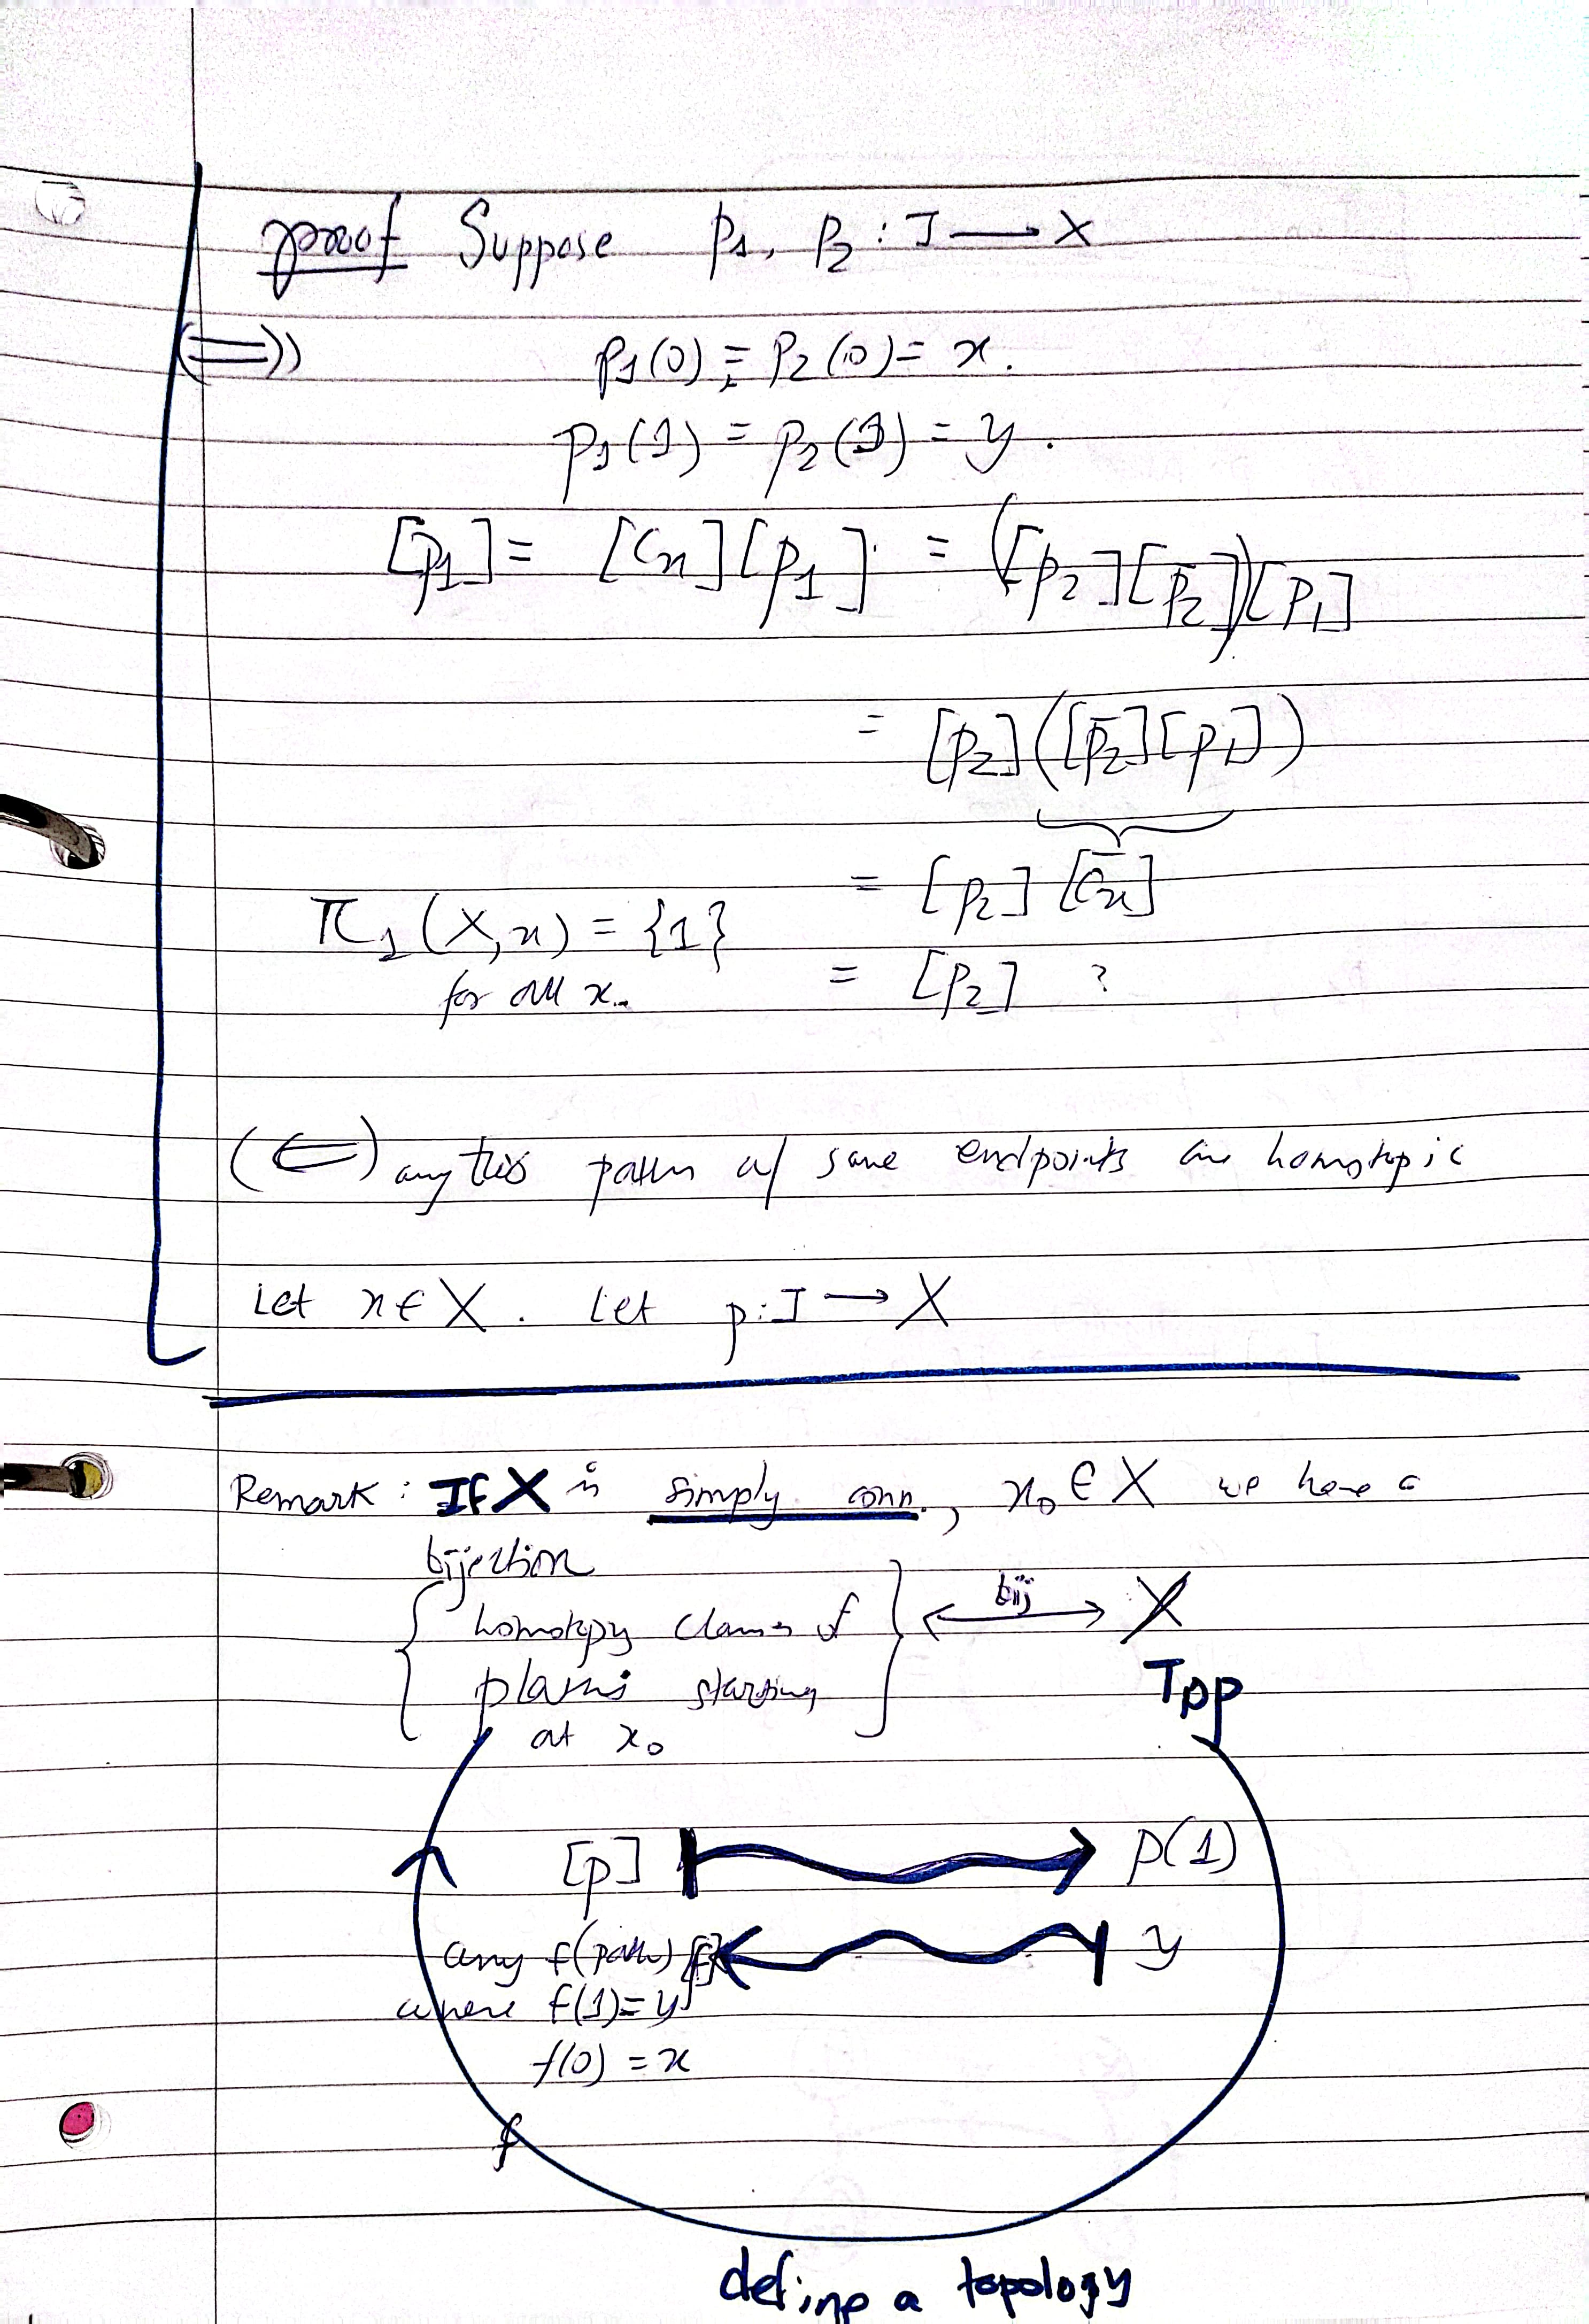 proof Suppose p₁, p₂ : I → X
(⇒)) p₁(0) = p₂(0) = x.
p₁(1) = p₂(1) = y.
[p₁] = [Cx][p₁] = ([p₂][p̄₂])[p₁]
= [p₂]([p̄₂][p₁])
= [p₂][C̄x]
π₁(X,x) = {1}
for all x..
= [p₂] ?
(⇐) any two paths w/ same endpoints are homotopic
Let x ∈ X. Let p: I → X
Remark: If X is simply conn., x₀ ∈ X we have a
bijection
{ homotopy classes of } ←bij→ X
starting
at x₀
Top
[p] ↦ p(1)
any f(path) [f] ↤ y
where f(1)=y
f(0) = x
f
define a topology